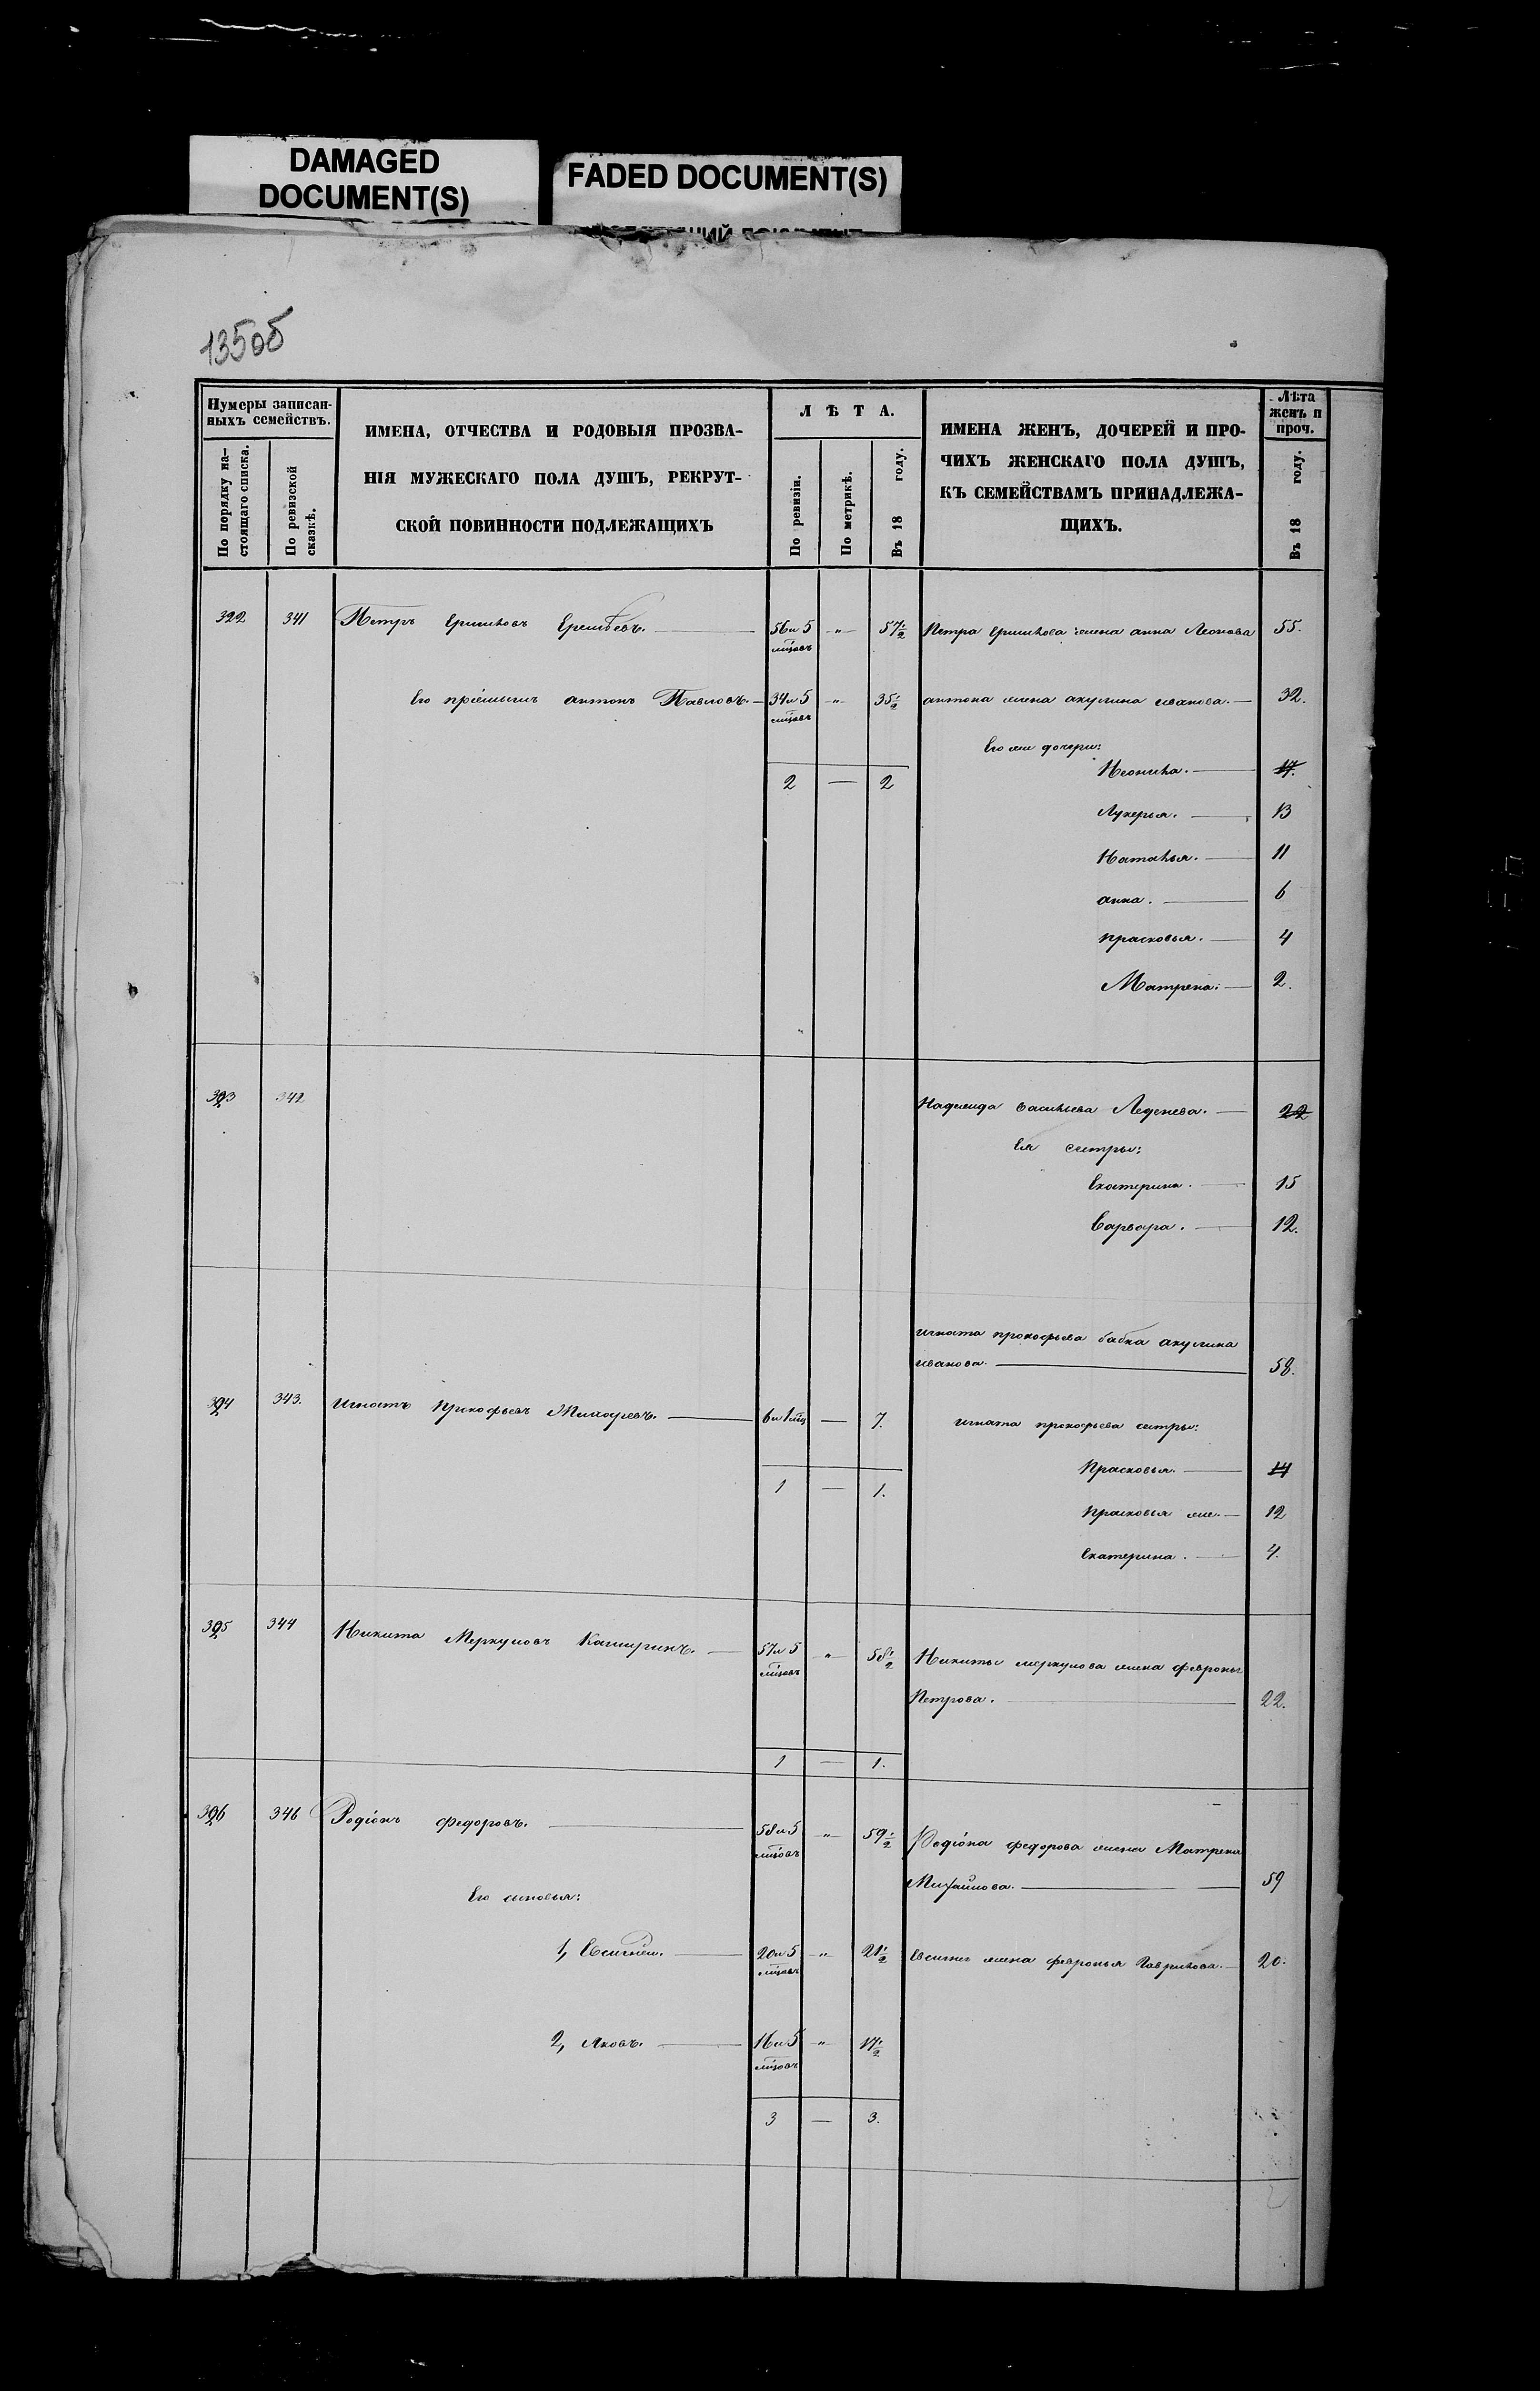 DAMAGED
DOCUMENT(S)
FADED DOCUMENT(S)
135об
Нумеры записан-
ныхъ семействъ.
По порядку на-
стоящаго списка.
По ревизской
сказкѣ.
ИМЕНА, ОТЧЕСТВА И РОДОВЫЯ ПРОЗВА-
НІЯ МУЖЕСКАГО ПОЛА ДУШЪ, РЕКРУТ-
СКОЙ ПОВИННОСТИ ПОДЛЕЖАЩИХЪ
ЛѢТА.
По ревизіи.
По метрикѣ.
Въ 18 году.
ИМЕНА ЖЕНЪ, ДОЧЕРЕЙ И ПРО-
ЧИХЪ ЖЕНСКАГО ПОЛА ДУШЪ,
КЪ СЕМЕЙСТВАМЪ ПРИНАДЛЕЖА-
ЩИХЪ.
Лѣта
женъ и
проч.
Въ 18 году.
322 341 Петръ 56 и 5 " 57 1/2 Петра жена анна Леонова 55.
мцовъ
Его пріемышъ антонъ Павловъ. — 34 и 5 " 35 1/2 антона жена акулина иванова. — 32.
мцовъ
Его же дочери:
2 — 2 Неонила. — 17.
Лукерья. — 13
Наталья. — 11
анна. — 6
прасковья. — 4
Матрена. — 2.
323 342 Надежда васильева Леденева. — 22
Ея сестры:
Екатерина. — 15
Варвара. — 12.
игната прокофьева бабка акулина
иванова. — 58.
324 343. Игнатъ Прокофьевъ — 6 и 1 мц — 7. игната прокофьева сестры:
Прасковья. — 14
1 — 1.
прасковья же. — 12
Екатерина. — 4.
325 344 Никита Меркуловъ Каширинъ. — 57 и 5 " 58 1/2 Никиты меркулова жена февронья
мцовъ
Петрова. — 22.
1 — 1.
326 346 Родіонъ федоровъ. — 58 и 5 " 59 1/2 Родіона федорова жена Матрена
мцовъ
Михайлова. — 59
Его сыновья:
1, Евсигней. — 20 и 5 " 21 1/2 Евсигнея жена февронья Гаврилова. — 20.
мцовъ
2, Яковъ. — 16 и 5 " 17 1/2
мцовъ
3 — 3.